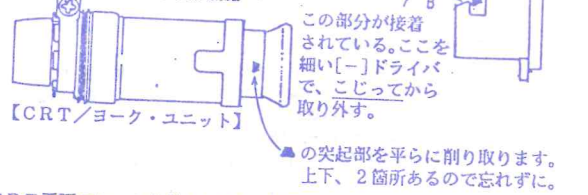 この部分が接着
されている。ここを
細い[－]ドライバ
で、こじってから
取り外す。
【CRT／ヨーク・ユニット】
の突起部を平らに削り取ります。
上下、2箇所あるので忘れずに。